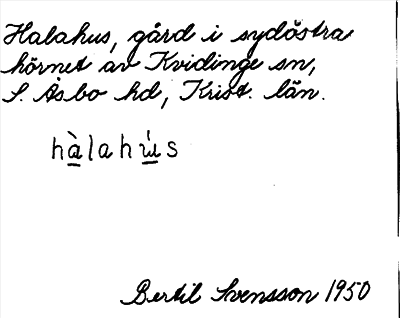 Halahus, gård i sydöstra
hörnet av Kvidinge sn,
S. Åsbo hd, Krist. län.
hàlahús
Bertil Svensson 1950